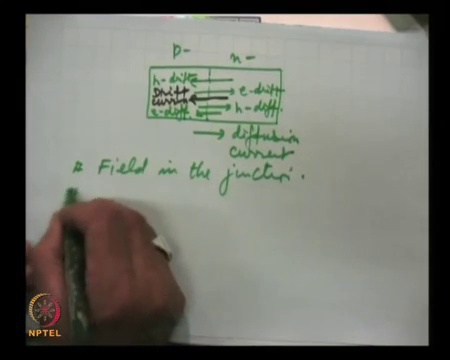 p- n-
h-drift
Drift e-drift
current h-diff.
e-diff.
diffusion
current
# Field in the junction.
NPTEL